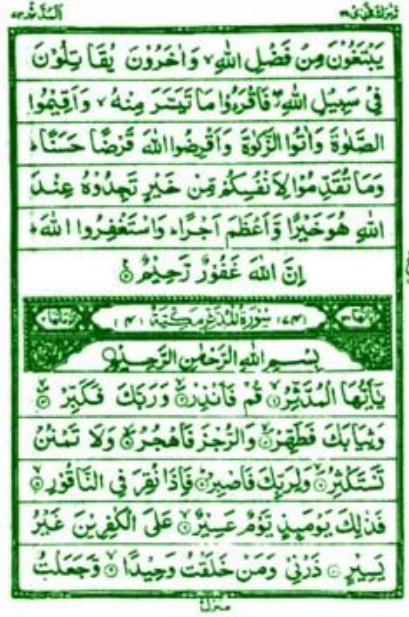 تبٰرك الذی ٢٩ المدثر ٧٤
يَبْتَغُوْنَ مِنْ فَضْلِ اللّٰهِ ۙ وَاٰخَرُوْنَ يُقَاتِلُوْنَ
فِيْ سَبِيْلِ اللّٰهِ ۖ فَاقْرَءُوْا مَا تَيَسَّرَ مِنْهُ ۙ وَاَقِيْمُوا
الصَّلٰوةَ وَاٰتُوا الزَّكٰوةَ وَاَقْرِضُوا اللّٰهَ قَرْضًا حَسَنًا ؕ
وَمَا تُقَدِّمُوْا لِاَنْفُسِكُمْ مِّنْ خَيْرٍ تَجِدُوْهُ عِنْدَ
اللّٰهِ هُوَ خَيْرًا وَّاَعْظَمَ اَجْرًا ؕ وَاسْتَغْفِرُوا اللّٰهَ ؕ
اِنَّ اللّٰهَ غَفُوْرٌ رَّحِيْمٌ ۟
(٧٤) سُوْرَةُ الْمُدَّثِّرِ مَكِّيَّةٌ (٤)
بِسْمِ اللّٰهِ الرَّحْمٰنِ الرَّحِيْمِ
يٰۤاَيُّهَا الْمُدَّثِّرُ ۙ۱ قُمْ فَاَنْذِرْ ۙ۲ وَرَبَّكَ فَكَبِّرْ ۙ۳
وَثِيَابَكَ فَطَهِّرْ ۙ۴ وَالرُّجْزَ فَاهْجُرْ ۙ۵ وَلَا تَمْنُنْ
تَسْتَكْثِرُ ۙ۶ وَلِرَبِّكَ فَاصْبِرْ ؕ۷ فَاِذَا نُقِرَ فِي النَّاقُوْرِ ۙ۸
فَذٰلِكَ يَوْمَئِذٍ يَّوْمٌ عَسِيْرٌ ۙ۹ عَلَى الْكٰفِرِيْنَ غَيْرُ
يَسِيْرٍ ۱۰ ذَرْنِيْ وَمَنْ خَلَقْتُ وَحِيْدًا ۙ۱۱ وَّجَعَلْتُ
منزل ٧